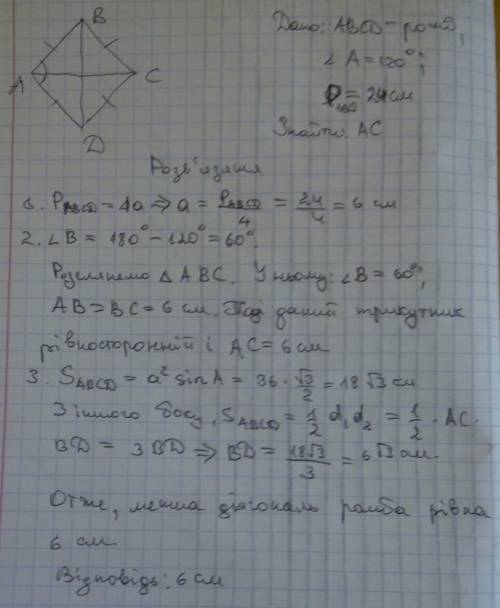 B
A
C
D
Дано: ABCD - ромб,
∠ A = 120°;
P = 24 см
Знайти: AC
Розв'язання
1. P_ABCD = 4a ⇒ a = P_ABCD/4 = 24/4 = 6 см
2. ∠B = 180° - 120° = 60°.
Розглянемо △ ABC. У ньому: ∠B = 60°;
AB = BC = 6 см. Тоді даний трикутник
рівносторонній і AC = 6 см
3. S_ABCD = a² sin A = 36 · √3/2 = 18 √3 см
З іншого боку, S_ABCD = 1/2 d₁ d₂ = 1/2 · AC.
BD = 3 BD ⇒ BD = 18√3/3 = 6 √3 см.
Отже, менша діагональ ромба рівна
6 см
Відповідь: 6 см